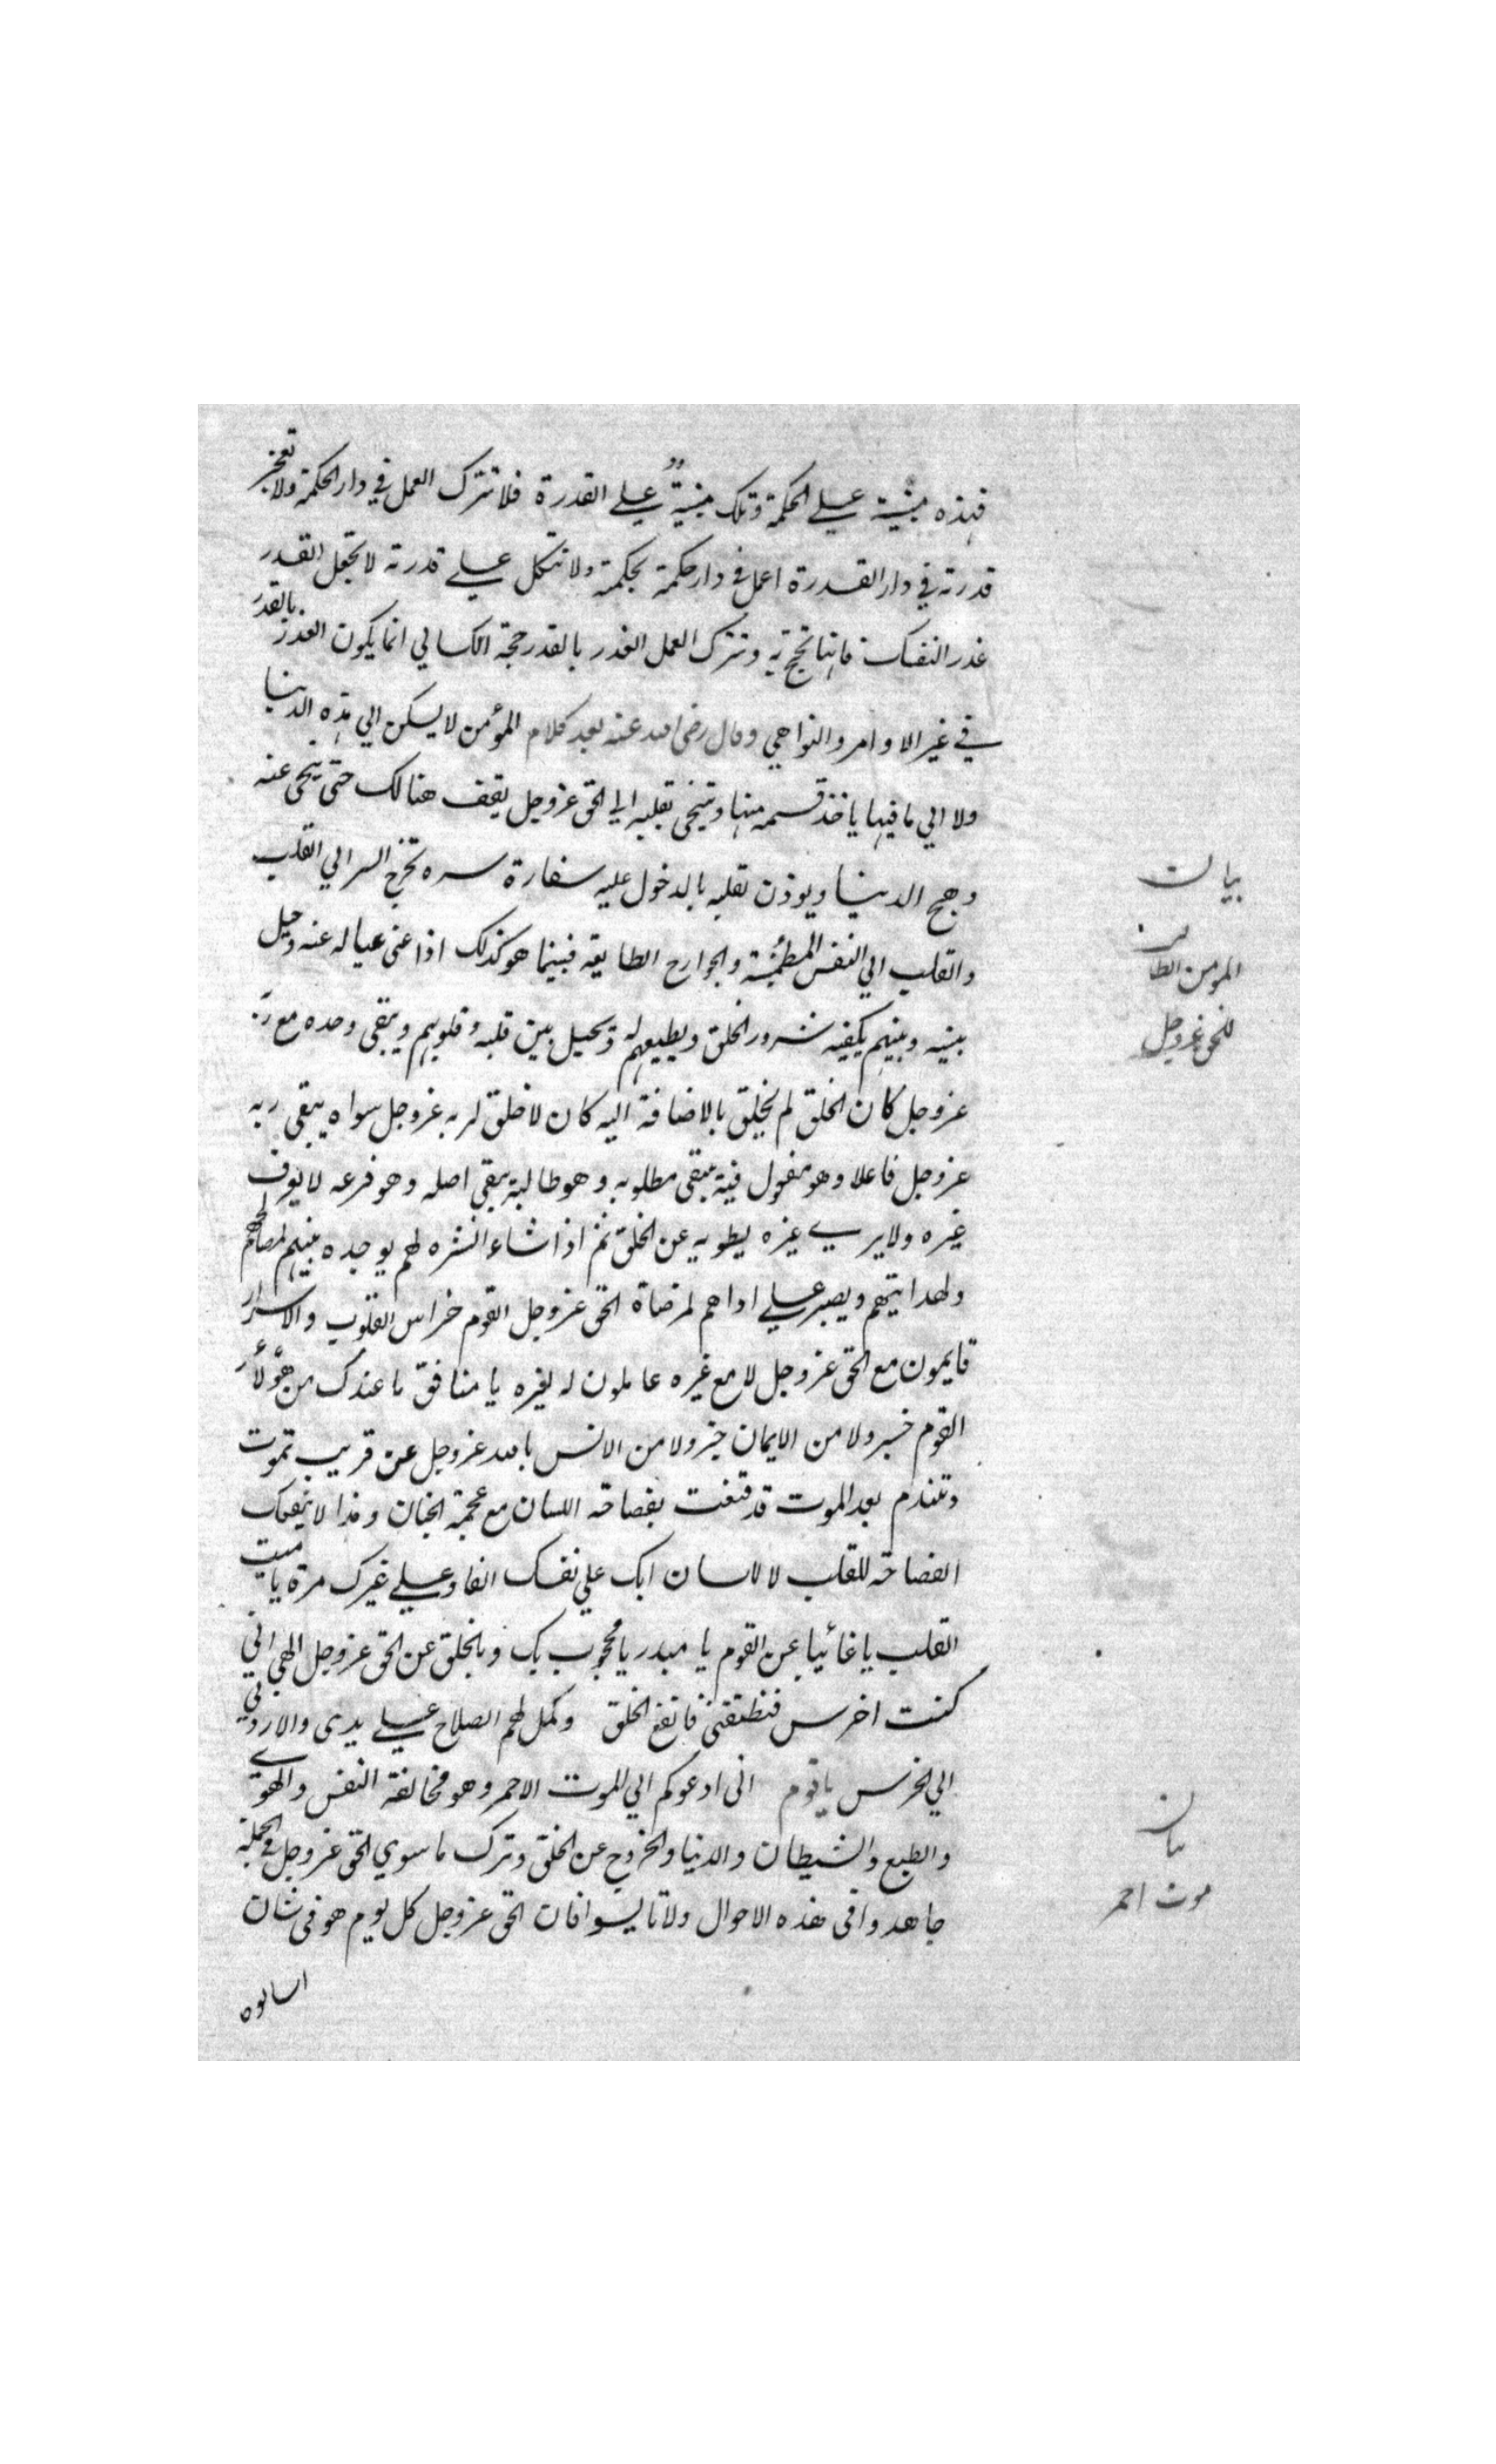 فهذه مبنية علي الحكمة وتلك مبنية علي القدرة فلا تترك العمل في دار الحكمة ولا تعجز
قدرته في دار القدرة اعمل في دار حكمته بحكمته ولا تتكل علي قدرته لا تجعل القدر
عذر النفسك فانها تحتج به وتترك العمل العذر بالقدر حجة الكسالي انما يكون العذر بالقدر
في غير الاوامر والنواهي وقال رضي الله عنه بعد كلام المؤمن لا يسكن الي هذه الدنيا
ولا الي ما فيها ياخذ قسمه منها ويتنحي بقلبه الي الحق عزوجل يقف هنالك حتى يتنحى عنه
وهج الدنيا ويوذن لقلبه بالدخول عليه سفارة سره تخرج السر الي القلب
والقلب الي النفس المطمئنة والجوارح الطايعة فبينما هو كذلك اذا غنى عياله عنه وحيل
بينه وبينهم يكفيه شرور الخلق ويطيعهم له وتحيل بين قلبه وقلوبهم ويبقى وحده مع ربه
عزوجل كان الخلق لم يخلق بالاضافة اليه كان لا خلق لربه عزوجل سواه يبقى ربه
عزوجل فاعلا وهو مفعول فيه يبقى مطلوبه وهو طالبه يبقي اصله وهو فرعه لا يعرف
غيره ولا يرى غيره يطويه عن الخلق ثم اذا شاء انشره لهم يوجده بينهم لمصالحهم
ولهدايتهم ويصبر علي اذاهم لمرضاة الحق عزوجل القوم حراس القلوب والاسرار
قايمون مع الحق عزوجل لا مع غيره عاملون له لغيره يا منافق ما عندك من هؤلاء
القوم خبر ولا من الايمان خبر ولا من الانس بالله عزوجل عن قريب تموت
وتندم بعد الموت قد قنعت بفصاحة اللسان مع عجمة الجنان وهذا لا ينفعك
الفصاحة للقلب لا للسان ابك علي نفسك الفا وعلي غيرك مرة يا ميت
القلب يا غائبا عن القوم يا مدبر يا محجوب بك وبالخلق عن الحق عزوجل الهي اني
كنت اخرس فنطقتني فانفع الخلق وكمل لهم الصلاح علي يدى والا ردني
الي الخرس يا قوم انى ادعوكم الي الموت الاحمر وهو مخالفة النفس والهوى
والطبع والشيطان والدنيا والخروج عن الخلق وترك ما سوي الحق عزوجل في الجملة
جاهدوا فى هذه الاحوال ولا تايسوا فان الحق عزوجل كل يوم هو فى شان
بيان
المومن
للحق عزوجل
بيان
موت احمر